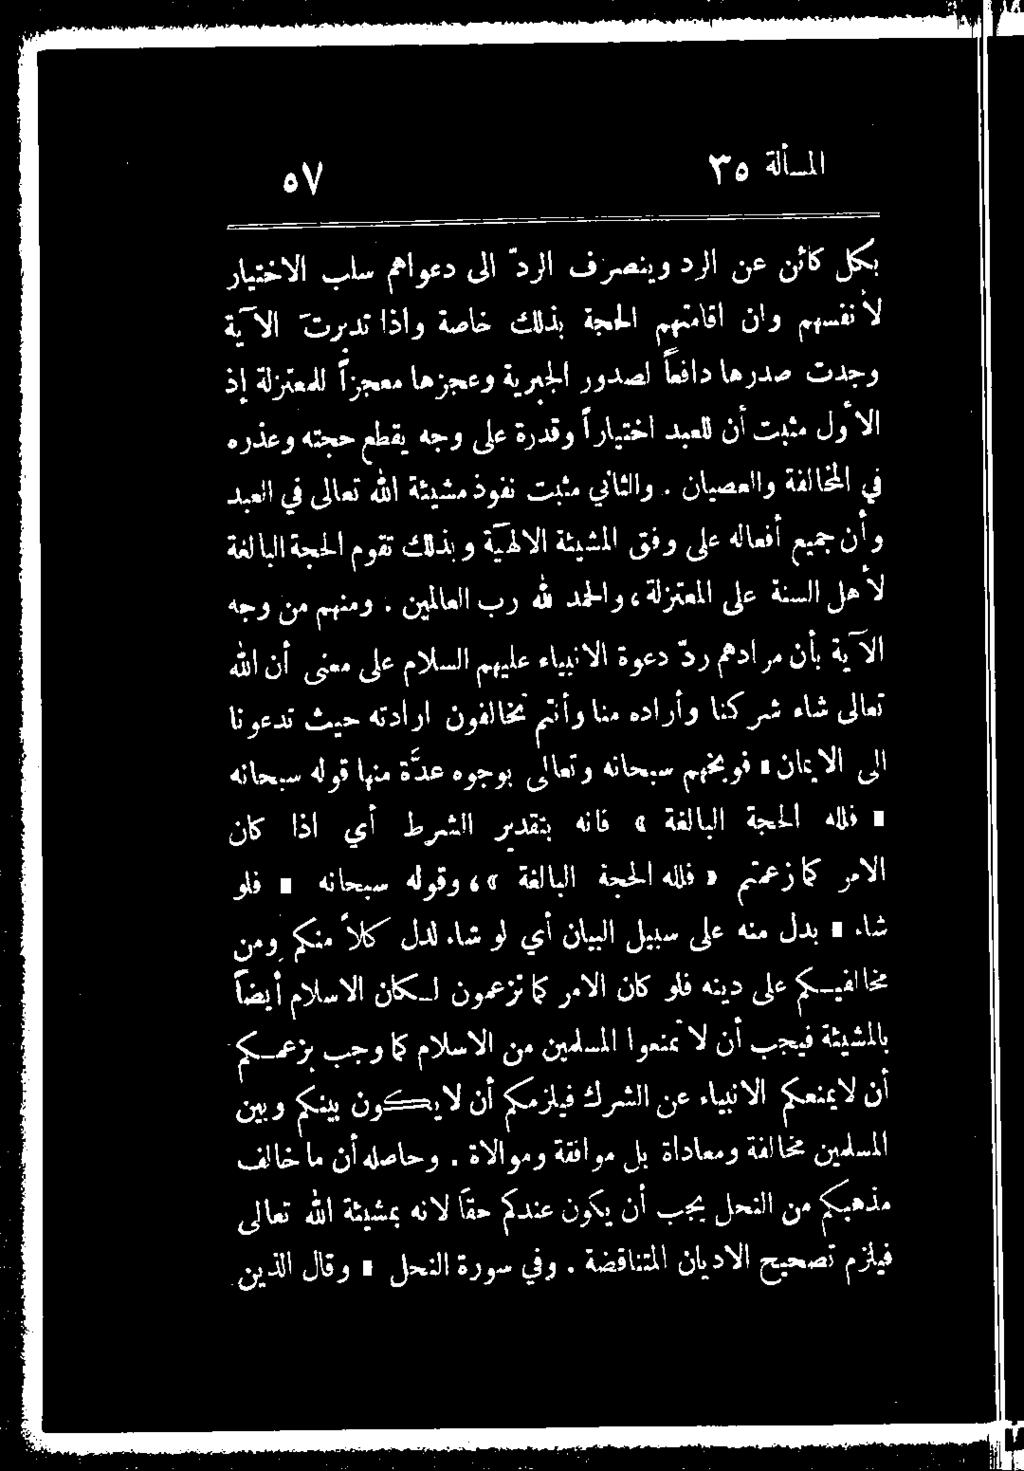 المسألة ٣٥
٥٧
بكل كائن عن الرد وينصرف الردّ الى دعواهم سلب الاختيار
لأنفسهم وان اقامتهم الحجة بذلك خاصة واذا تدبرت الآية
وجدت صدرها دافعاً لصدور الجبرية وعجزها معجزاً للمعتزلة إذ
الأول مثبت أن للعبد اختياراً وقدرة على وجه يقطع حجته وعذره
في المخالفة والعصيان . والثاني مثبت نفوذ مشيئة الله تعالى في العبد
وأن جميع أفعاله على وفق المشيئة الالهية وبذلك تقوم الحجة البالغة
لأهل السنة على المعتزلة، والحمد لله رب العالمين . ومنهم من وجه
الآية بأن مرادهم ردّ دعوة الانبياء عليهم السلام على معنى أن الله
تعالى شاء شركنا وأراده منا وأنتم تخالفون ارادته حيث تدعونا
الى الايمان ∎ فوبخهم سبحانه وتعالى بوجوه عدّة منها قوله سبحانه
∎ فلله الحجة البالغة » فانه بتقدير الشرط أي اذا كان
الامر كما زعمتم » فلله الحجة البالغة »، وقوله سبحانه ∎ فلو
شاء ∎ بدل منه على سبيل البيان أي لو شاء لدل كلاً منكم ومن
مخالفيكم على دينه فلو كان الامر كما تزعمون لكان الاسلام أيضاً
بالمشيئة فيجب أن لا تمنعوا المسلمين من الاسلام كما وجب بزعمكم
أن لا يمنعكم الانبياء عن الشرك فيلزمكم أن لا يكون بينكم وبين
المسلمين مخالفة ومعاداة بل موافقة وموالاة . وحاصله أن ما خالف
مذهبكم من النحل يجب أن يكون عندكم حقاً لانه بمشيئة الله تعالى
فيلزم تصحيح الاديان المتناقضة . وفي سورة النحل ∎ وقال الذين